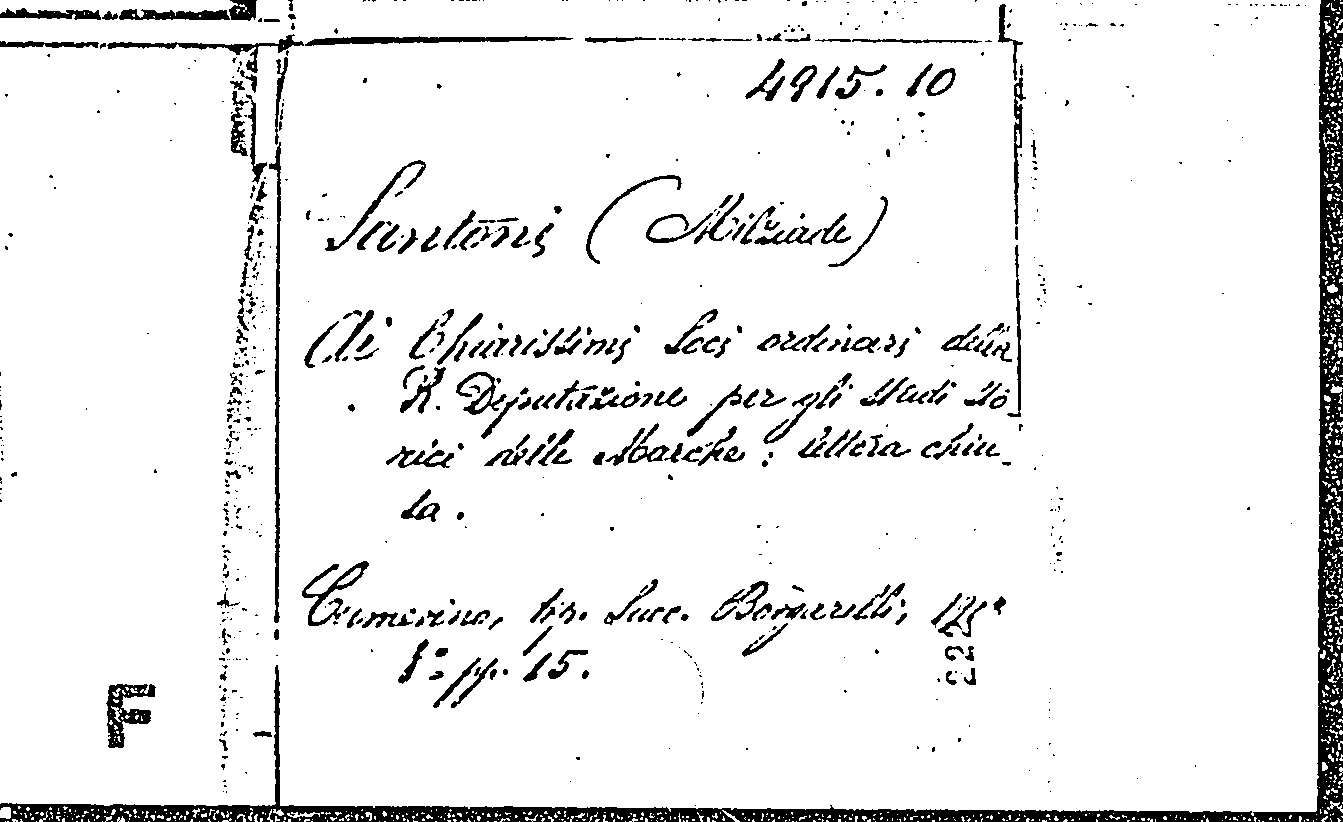 4915.10
Santoni (Milziade)
Ai Chiarissimi Soci ordinari della
R. Deputazione per gli studi sto
rici delle Marche: lettera chiu_
sa.
Camerino, tip. Succ. Borgarelli,
8º pp. 15.
222
F